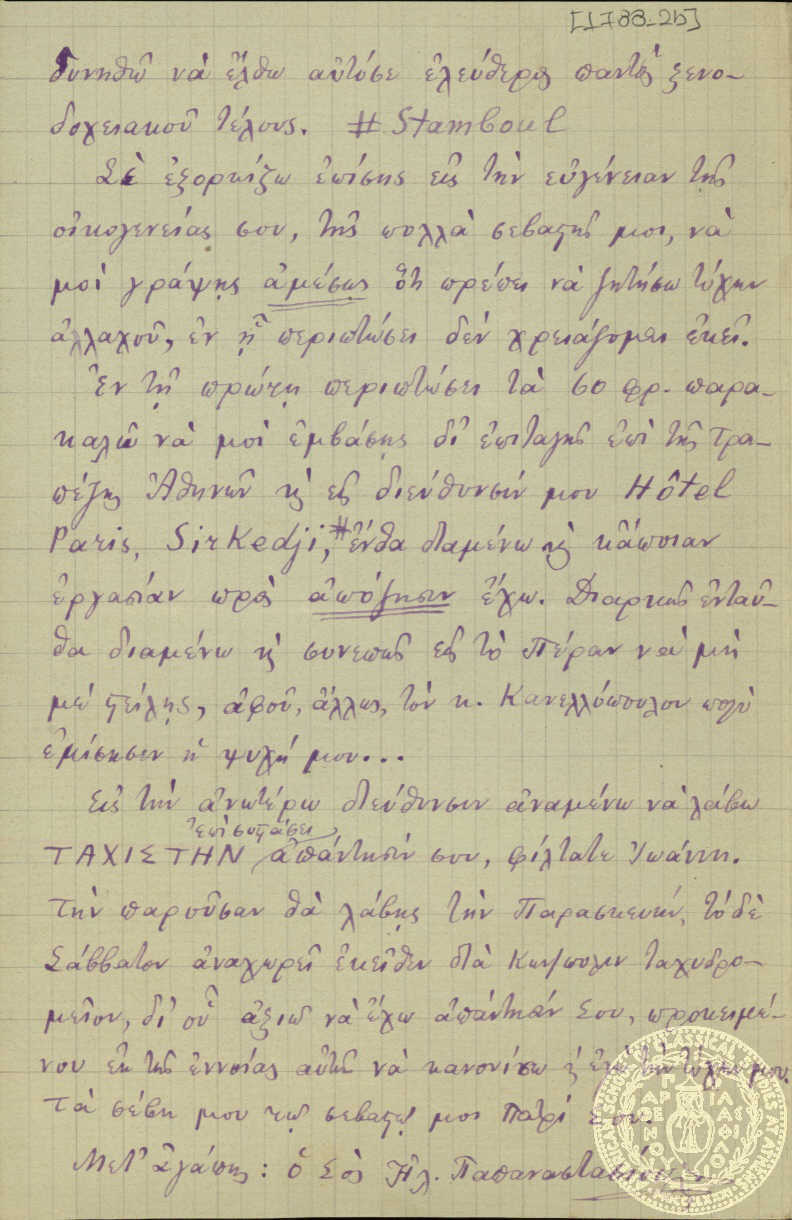 [1788-2b]
δυνηθῶ νὰ ἔλθω αὐτόσε ἐλεύθερος παντὸς ξενο-
δοχειακοῦ τέλους. # Stamboul
Σὲ ἐξορκίζω ἐπίσης εἰς τὴν εὐγένειαν τῆς
οἰκογενείας σου, τῆς πολλὰ σεβαστῆς μοι, νὰ
μοὶ γράψῃς ἀμέσως ὅτι πρέπει νὰ ζητήσω τύχην
ἀλλαχοῦ, ἐν ᾗ περιπτώσει δὲν χρειάζομαι ἐκεῖ.
Ἐν τῇ πρώτῃ περιπτώσει τὰ 60 φρ. παρα-
καλῶ νὰ μοὶ ἐμβάσῃς δι' ἐπιταγῆς ἐπὶ τῆς Τρα-
πέζης Ἀθηνῶν κ' εἰς διεύθυνσίν μου Hôtel
Paris, Sirkedji, # ἔνθα διαμένω κ' κἄποιαν
ἐργασίαν πρὸς ἀποζησιν ἔχω. Διαρκῶς ἐνταῦ-
θα διαμένω κ' συνεπῶς εἰς τὸ Πέραν νὰ μὴ
μὲ στείλῃς, ἀφοῦ, ἄλλως, τὸν κ. Κανελλόπουλον πολὺ
ἐμίσησεν ἡ ψυχή μου...
Εἰς τὴν ἀνωτέρω διεύθυνσιν ἀναμένω νὰ λάβω
ἐπὶ συστάσει
ΤΑΧΙΣΤΗΝ ἀπάντησίν σου, φίλτατε Ἰωάννη.
Τὴν παροῦσαν θὰ λάβῃς τὴν Παρασκευήν, τὸ δὲ
Σάββατον ἀναχωρεῖ ἐκεῖθεν διὰ Κων)πολιν ταχυδρο-
μεῖον, δι' οὗ ἀξιῶ νὰ ἔχω ἀπάντησίν Σου, προκειμέ-
νου ἐκ τῆς ἐννοίας αὐτῆς νὰ κανονίσω κ' ἐγὼ τὴν τύχην μου.
Τὰ σέβη μου τῷ σεβαστῷ μοι Πατρί Σου.
Μετ' ἀγάπης: ὁ Σὸς Ἠλ. Παπαναστασίου